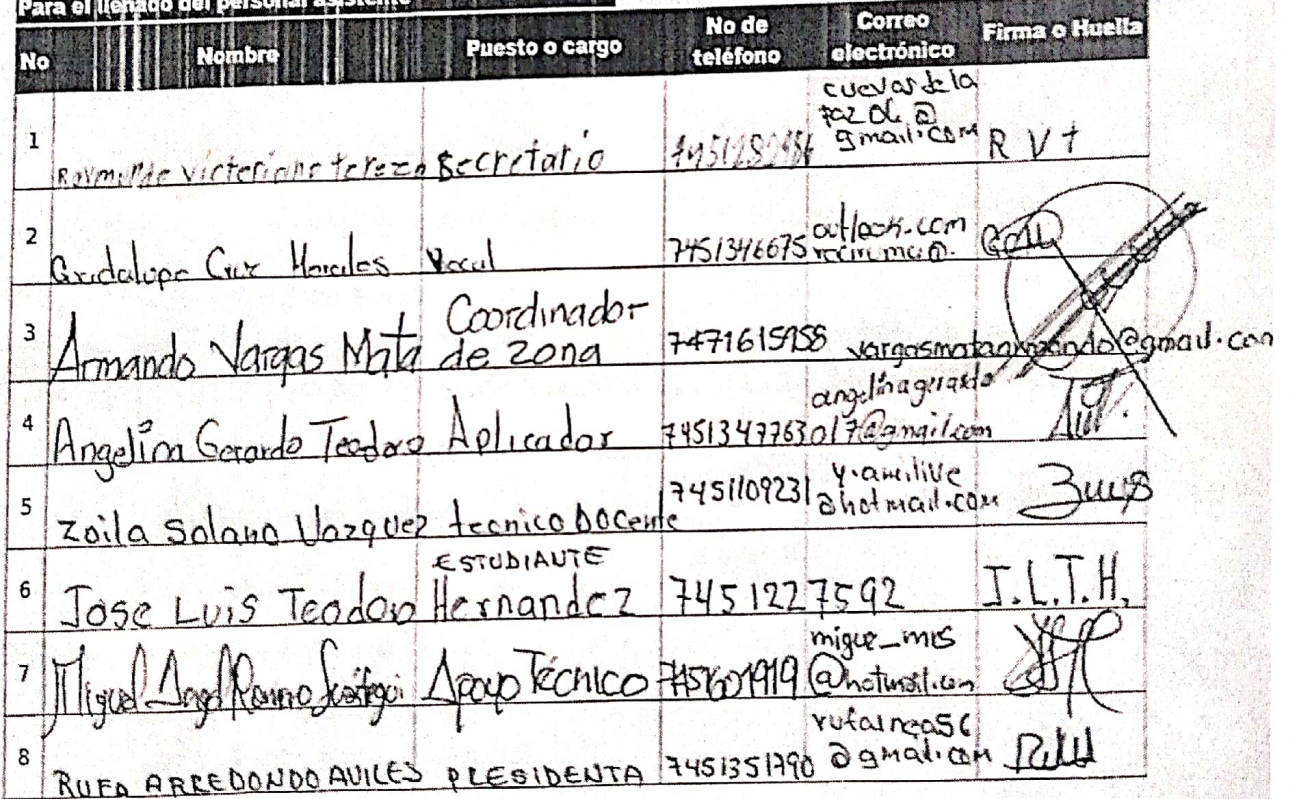 Para el llenado del personal asistente
No Nombre Puesto o cargo No de teléfono Correo electrónico Firma o Huella
1 Victoriano Secretario cuevasdela
@
gmail.com R V t
2 Guadalupe Cruz Morales Vocal 7451346675 outlook.com
3 Armando Vargas Mata Coordinador
de zona 7471615958 vargasmataarmando@gmail.com
4 Angelina Gerardo Teodoro Aplicador 7451347763 angelinagerardo
017@gmail.com
5 Zoila Solano Vazquez tecnico Docente 7451109231 y.amilive
@hotmail.com
6 Jose Luis Teodoro Hernandez ESTUDIANTE 7451227592 J.L.T.H.
7 Miguel Angel Apoyo Técnico migue_mrs
@hotmail.com
8 RUFA ARREDONDO AVILES PLESIDENTA 7451351790
@gmail.com